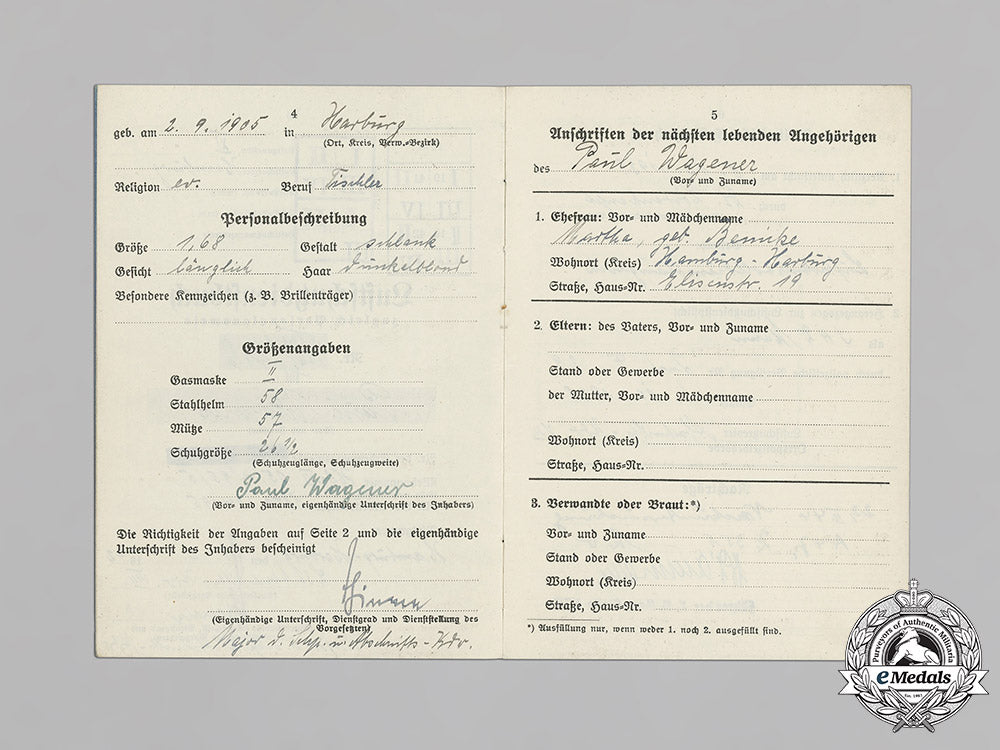 4
geb. am 2. 9. 1905 in Harburg
(Ort, Kreis, Verw.-Bezirk)
Religion ev. Beruf Tischler
Personalbeschreibung
Größe 1,68 Gestalt schlank
Gesicht länglich Haar dunkelblond
Besondere Kennzeichen (z. B. Brillenträger)
Größenangaben
Gasmaske II
Stahlhelm 58
Mütze 57
Schuhgröße 26 1/2
(Schuhzeuglänge, Schuhzeugweite)
Paul Wagener
(Vor- und Zuname, eigenhändige Unterschrift des Inhabers)
Die Richtigkeit der Angaben auf Seite 2 und die eigenhändige
Unterschrift des Inhabers bescheinigt
(Eigenhändige Unterschrift, Dienstgrad und Dienststellung des
Vorgesetzten)
Major d. Schp. u. Abschnitts-Kdr.
5
Anschriften der nächsten lebenden Angehörigen
des Paul Wagener
(Vor- und Zuname)
1. Ehefrau: Vor- und Mädchenname
Martha, geb.
Wohnort (Kreis) Hamburg-Harburg
Straße, Haus-Nr. Elisenstr. 19
2. Eltern: des Vaters, Vor- und Zuname
Stand oder Gewerbe
der Mutter, Vor- und Mädchenname
Wohnort (Kreis)
Straße, Haus-Nr.
3. Verwandte oder Braut:*)
Vor- und Zuname
Stand oder Gewerbe
Wohnort (Kreis)
Straße, Haus-Nr.
*) Ausfüllung nur, wenn weder 1. noch 2. ausgefüllt sind.
Purveyors of Authentic Militaria
eMedals